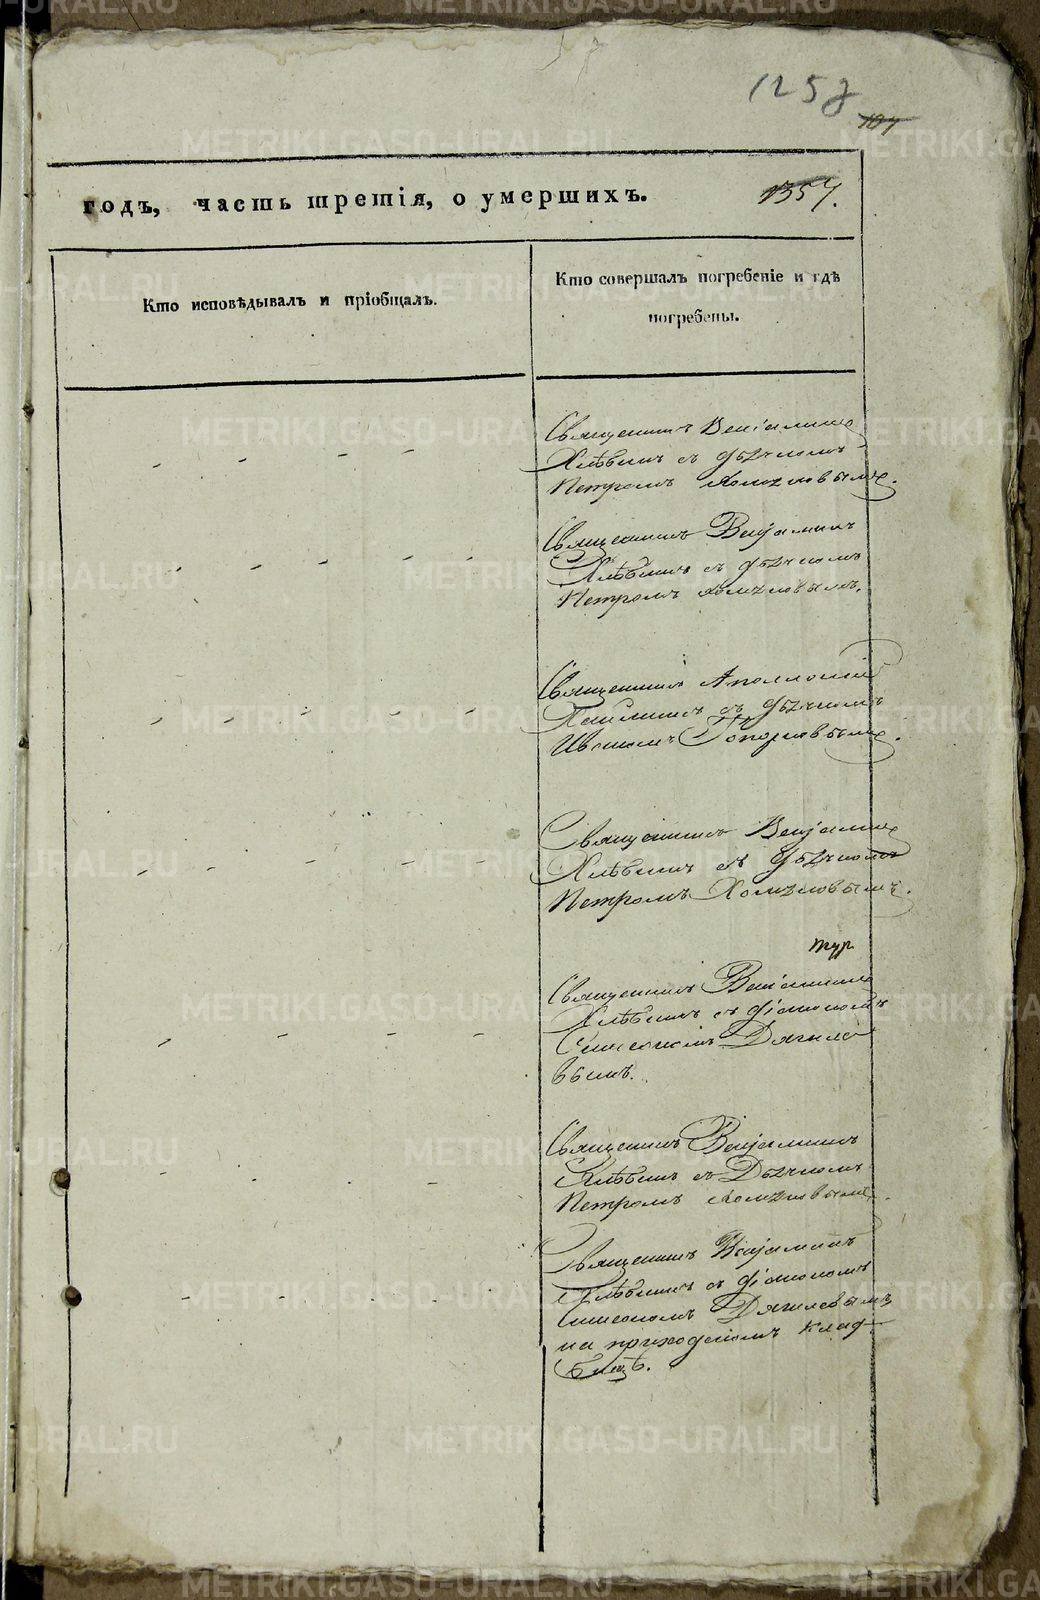 1257
104
годъ, часть третія, о умершихъ. 1357.
Кто исповѣдывалъ и пріобщалъ.
Кто совершалъ погребеніе и гдѣ
погребены.
Священникъ Веніаминъ
Хлѣбинъ съ дьячкомъ
Петромъ Хомяковымъ.
Священникъ Веніяминъ
Хлѣбинъ съ дьячкомъ
Петромъ Хомяковымъ.
Священникъ Аполлоній
съ дьячкомъ
Иваномъ Топорковымъ.
Священникъ Веніяминъ
Хлѣбинъ съ дьячкомъ
Петромъ Хомяковымъ.
Священникъ Веніаминъ
Хлѣбинъ съ діакономъ
Симеономъ Дягиле
вымъ.
Священникъ Веніяминъ
Хлѣбинъ съ Дьячкомъ
Петромъ Хомяковымъ.
Священникъ Веніяминъ
Хлѣбинъ съ діакономъ
Симеономъ Дягилевымъ
на приходскомъ клад
бищѣ.
METRIKI.GASO-URAL.RU